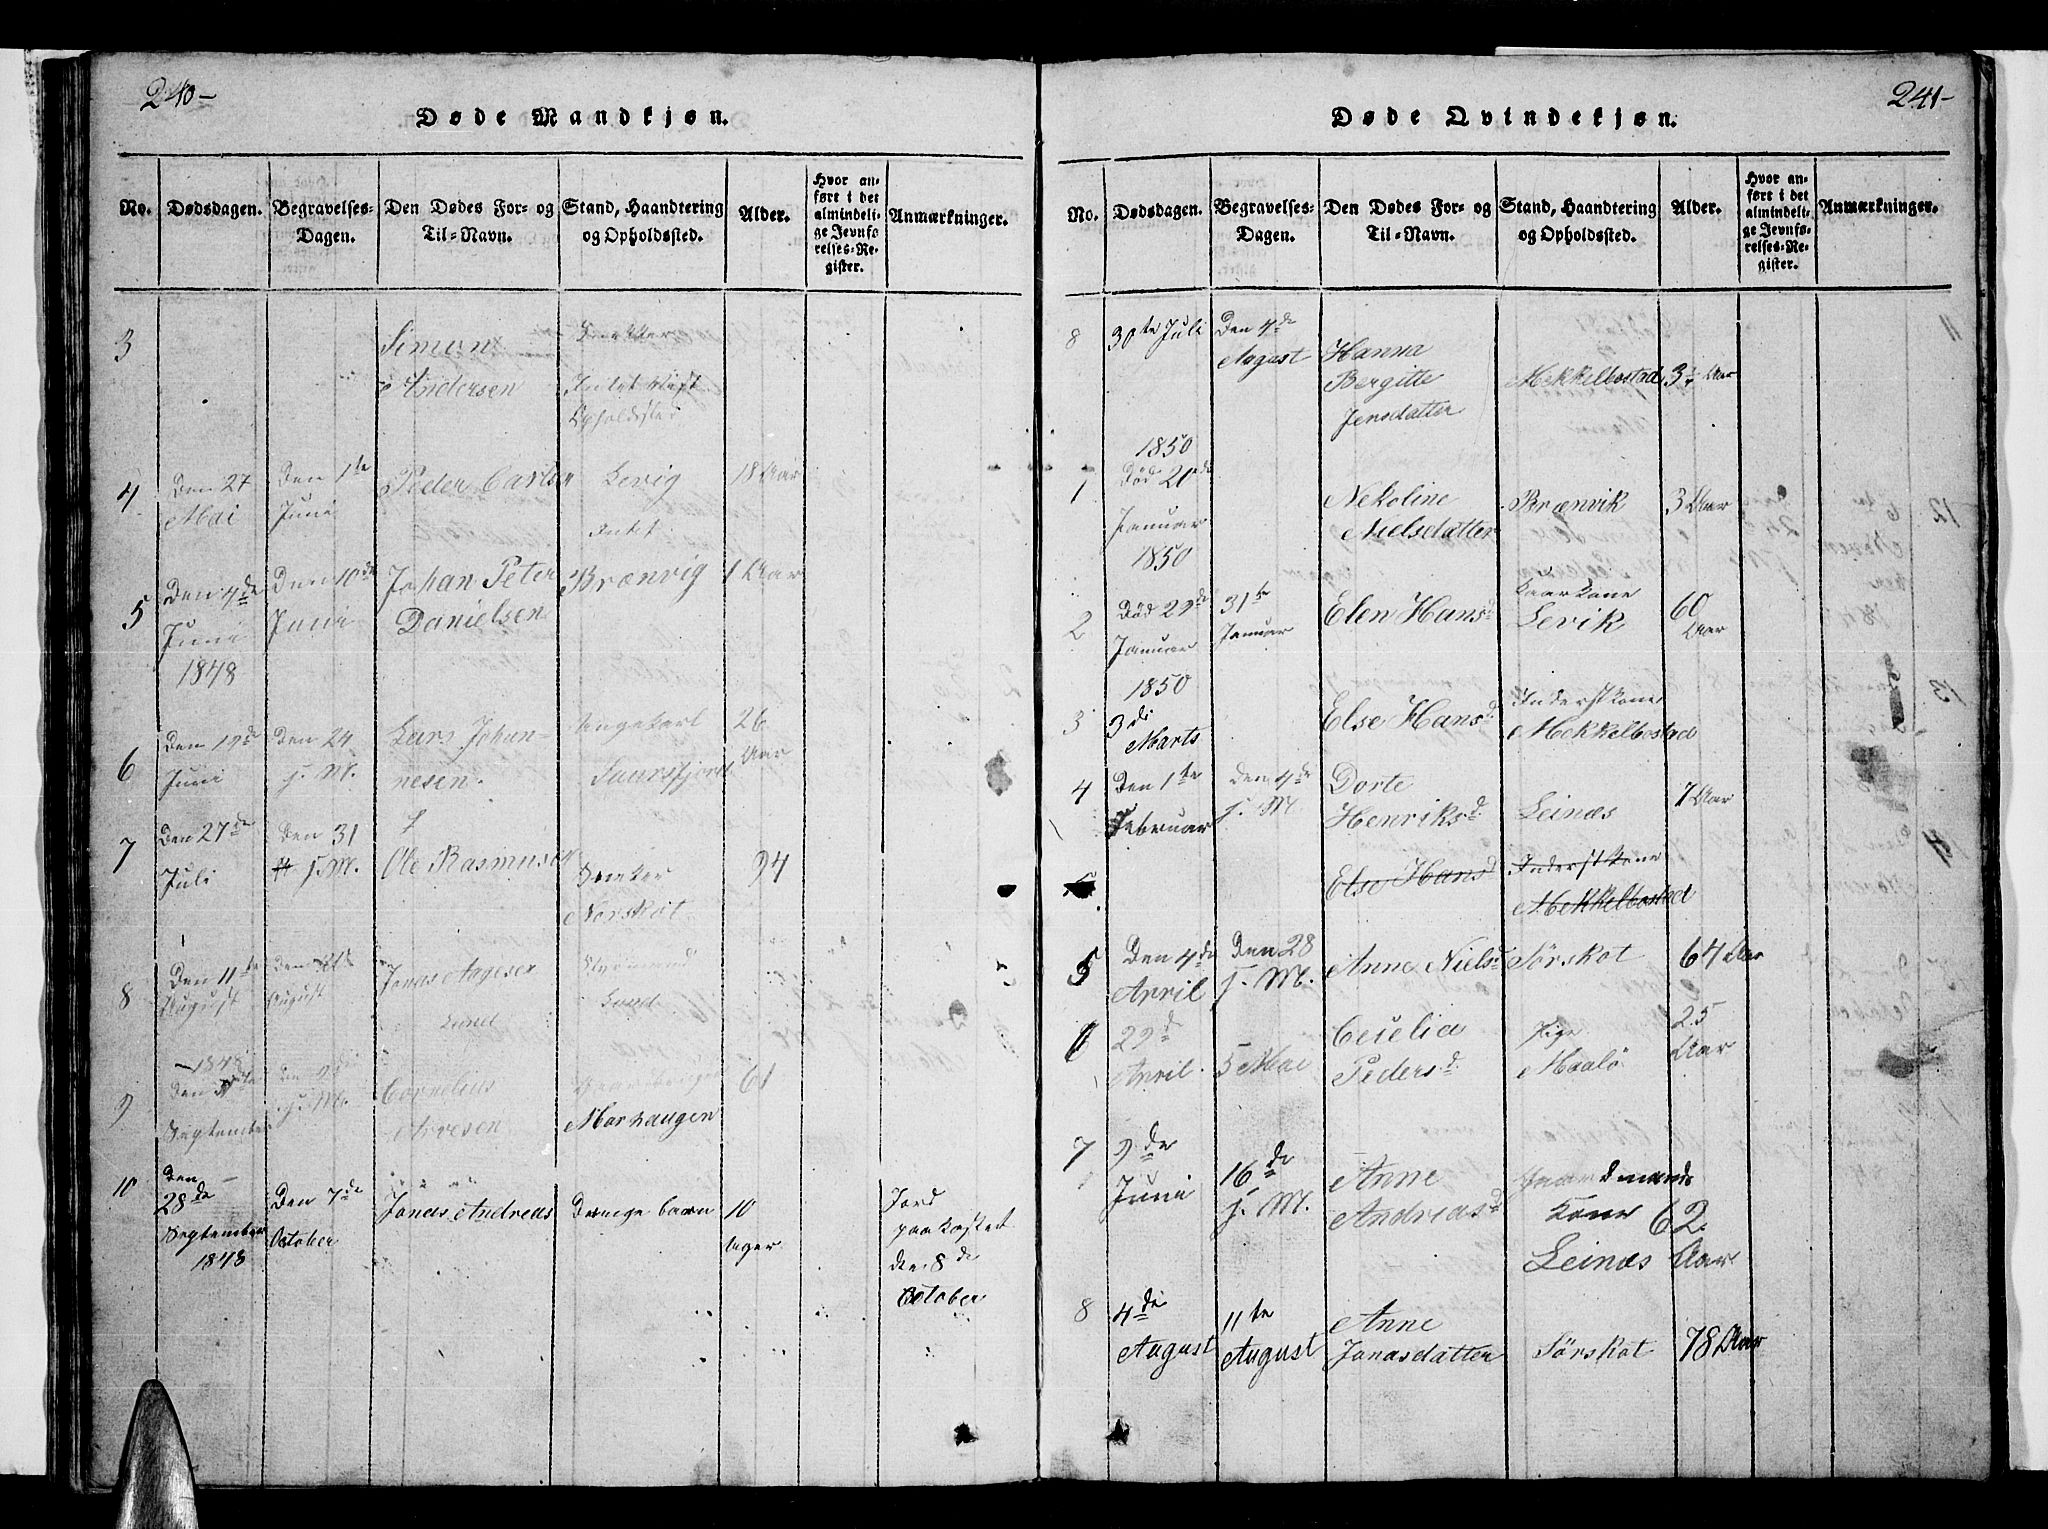 240-
Døde Mandkjøn.
No.
Dødsdagen.
Begravelses-
Dagen.
Den Dødes For- og
Til-Navn.
Stand, Haandtering
og Opholdssted.
Alder.
Hvor an-
ført i det
almindeli-
ge Jevnfø-
relses-Re-
gister.
Anmærkninger.
3
Simon
Andersen
Intet vist
Opholdsted
4
Den 27
Mai
Den 1te
Juni
Peder Carlsen
Levig
Intet
18 Aar
5
Den 4de
Juni
1848
Den 10de
Juni
Johan Peter
Danielsen
Brænvig
1 Aar
6
Den 19de
Juni
Den 24
j. M.
Lars Johan-
nesen.
Ungekarl
Saursfjord
26
Aar
7
Den 27de
Juli
Den 31
j. M.
Ole Rasmusen
Norskot
94
8
Den 11te
August
Den
August
Jonas Aagesen
Lund
Lund
9
1848
Den
September
Den
j. M.
Cornelius
Arvesen
Marhaugen
61
10
Den
28de
September
1848
Den 7de
October
Jonas Andreas
Drenge barn
10
uger
Jord
paakastet
den 8de
October
241-
Døde Qvindekjøn.
No.
Dødsdagen.
Begravelses-
Dagen.
Den Dødes For- og
Til-Navn.
Stand, Haandtering
og Opholdssted.
Alder.
Hvor an-
ført i det
almindeli-
ge Jevnfø-
relses-Re-
gister.
Anmærkninger.
8
30te Juli
Den 4de
August
Hanna
Bergitte
Jensdatter
Mekkelbostad
Aar
1
1850
Død 20de
Januar
1850
Nekoline
Nielsdatter
Brænvik
3 Aar
2
Død 29de
Januar
31te
Januar
Elen Hansd
Kaarkone
Levik
60
Aar
3
1850
3di
Marts
Else Hansd
Inderstkone
Mekkelbostad
4
Den 1te
Februar
Den 4de
j. M.
Dorte
Henriksd
Leinæs
7 Aar
Else Hansd
Inderstkone
Mekkelbostad
5
Den 4de
April
Den 28
j. M.
Anne Nielsd
Sørskot
64 Aar
6
29d
April
5 Mai
Cecelia
Pedersd
Pige
Maalö
25
Aar
7
9de
Juni
16de
j. M.
Anne
Andreasd
Gaardmands
Kone
Leinæs
62
Aar
8
4de
August
11te
August
Anne
Jonasdatter
Sörskot
78 Aar